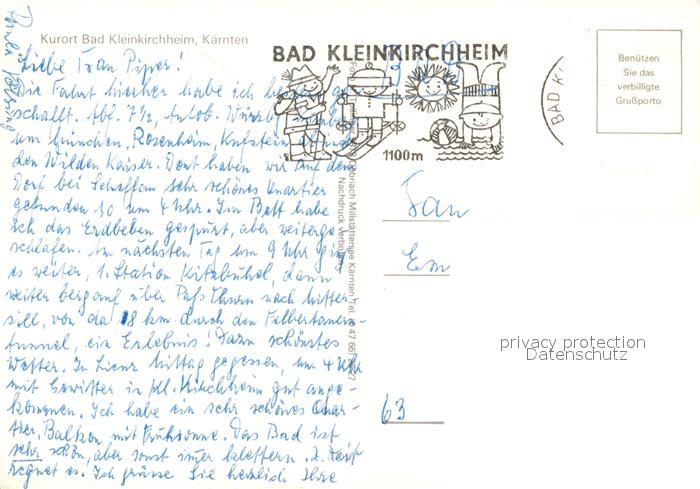 Kurort Bad Kleinkirchheim, Kärnten
Liebe Frau Piper!
Die Fahrt hierher habe ich ge-
schafft. Abf. 7½, Autob.
um München, Rosenheim, Kufstein
den Wilden Kaiser. Dort haben wir auf dem
Dorf bei Scheffau sehr schönes Quartier
gefunden so um 4 Uhr. Im Bett habe
ich das Erdbeben gespürt, aber weiterge-
schlafen. Am nächsten Tag um 9 Uhr ging
es weiter, 1. Station Kitzbühel, dann
weiter bergauf über Paß Thurn nach Mitter-
sill, von da 18 km durch den Felbertauern-
tunnel, ein Erlebnis! Dazu schönstes
Wetter. In Lienz Mittag gegessen, um 4 Uhr
mit Gewitter in Kl. Kirchheim gut ange-
kommen. Ich habe ein sehr schönes Quar-
tier, Balkon mit Frühsonne. Das Bad ist
sehr schön, aber sonst immer klettern.
regnet es. Ich grüsse Sie herzlich Ihre
BAD KLEINKIRCHHEIM
1100m
BAD K
Benützen
Sie das
verbilligte
Grußporto
Nachdruck verboten
Frau
Em
63
privacy protection
Datenschutz